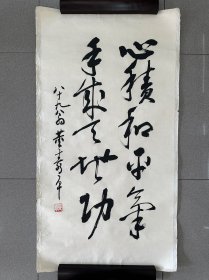 心積和平氣
手成天地功
八十九翁董壽平